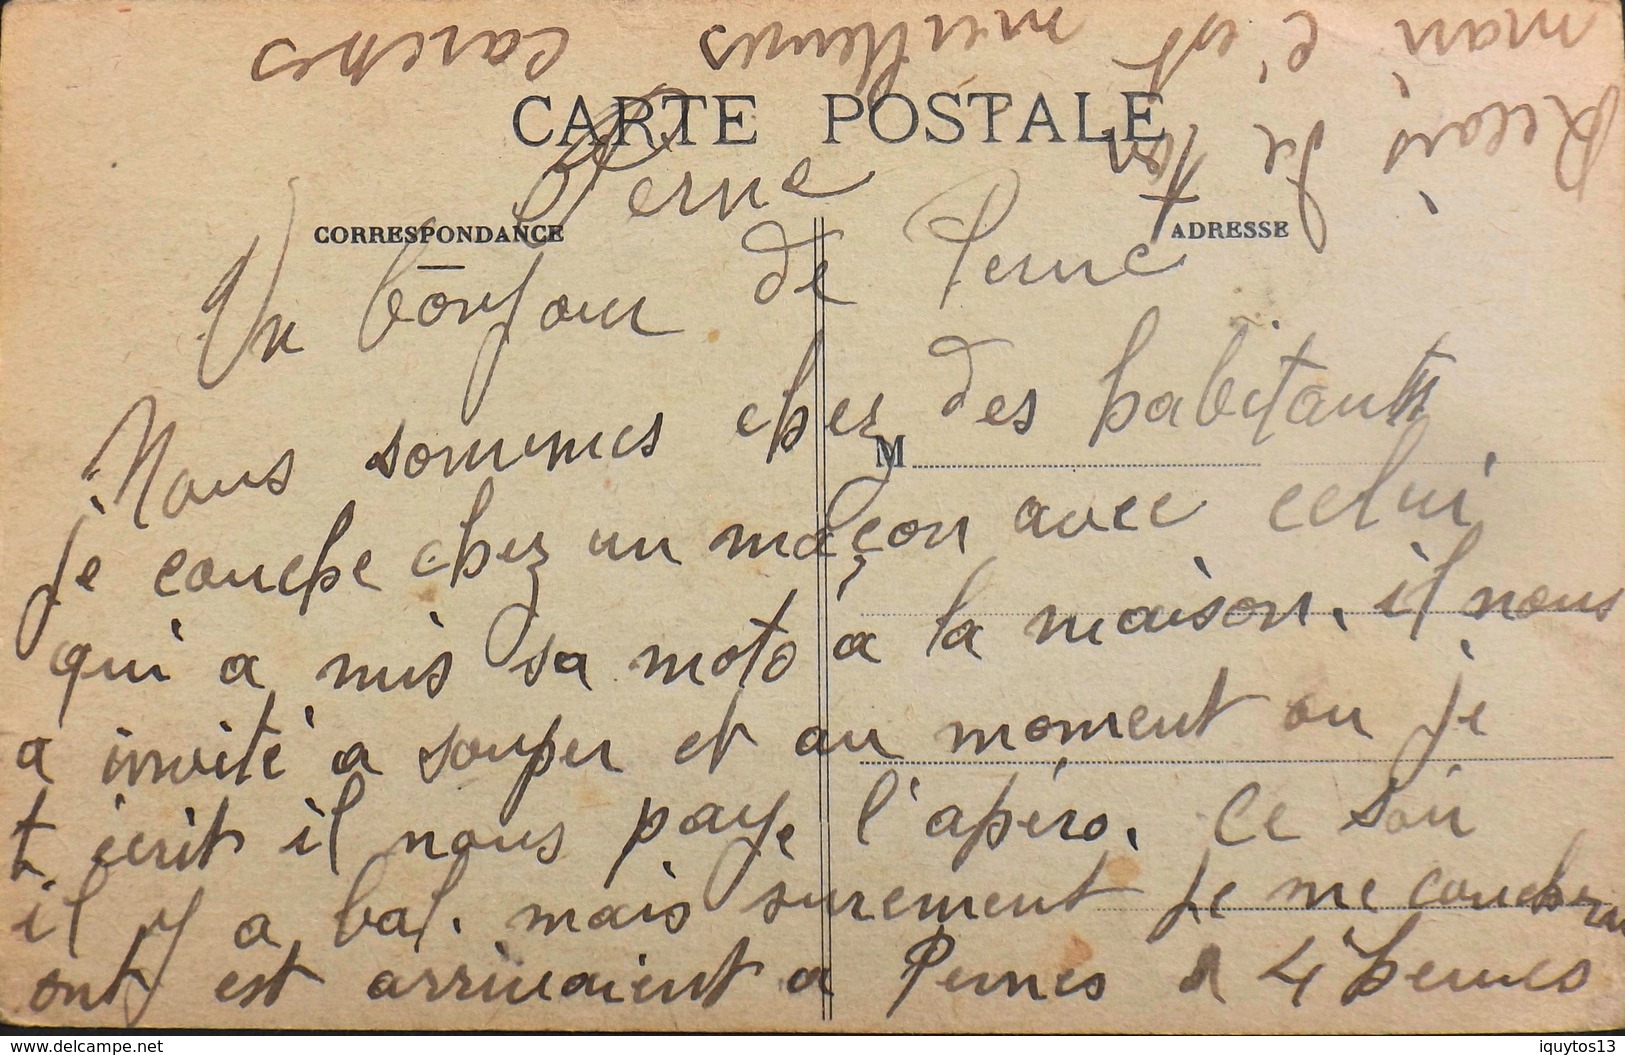 CARTE POSTALE
CORRESPONDANCE
ADRESSE
M
Perne
Un bonjour de Perne
Nous sommes chez des habitants
je couche chez un maçon avec celui
qui a mis sa moto à la maison. il nous
a invité a souper et au moment ou je
t écrit il nous paye l'apéro. Ce soir
il y a bal. mais surement je me coucherai
ont est arrivaient a Pernes a 4 heures
Recois de ton
mari c'est meilleurs caresses
www.delcampe.net
iquytos13